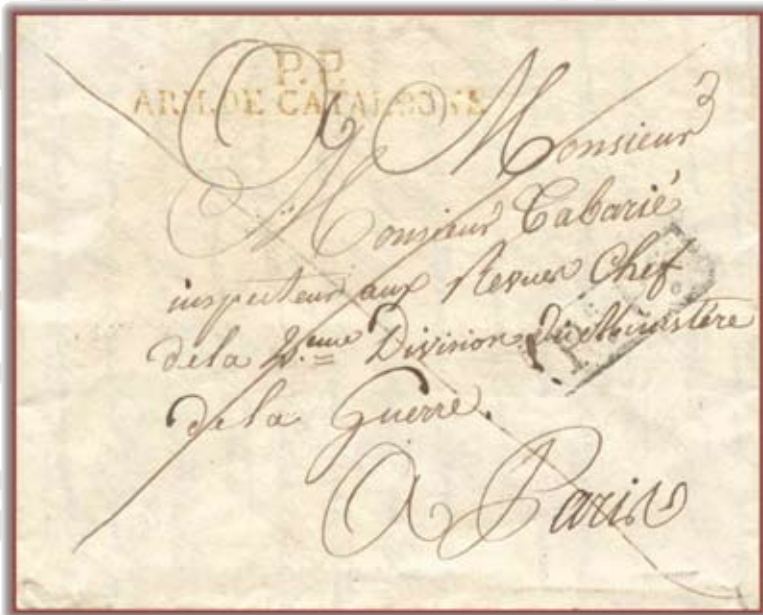 P.P.
ARM. DE CATALOGNE
A Monsieur
Monsieur Cabarié
inspecteur aux Revues Chef
de la 2.eme Division du Ministère
de la Guerre.
A Paris